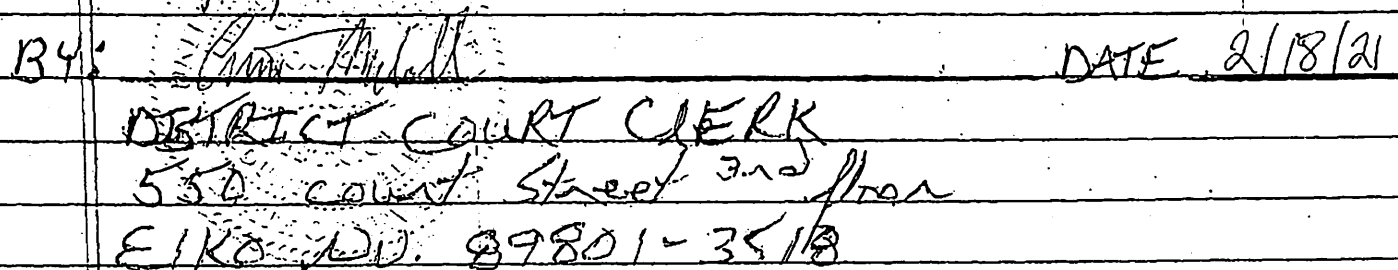 BY: DATE 2/18/21
DISTRICT COURT CLERK
550 court Street 3rd floor
ElKO NV. 89801-3518